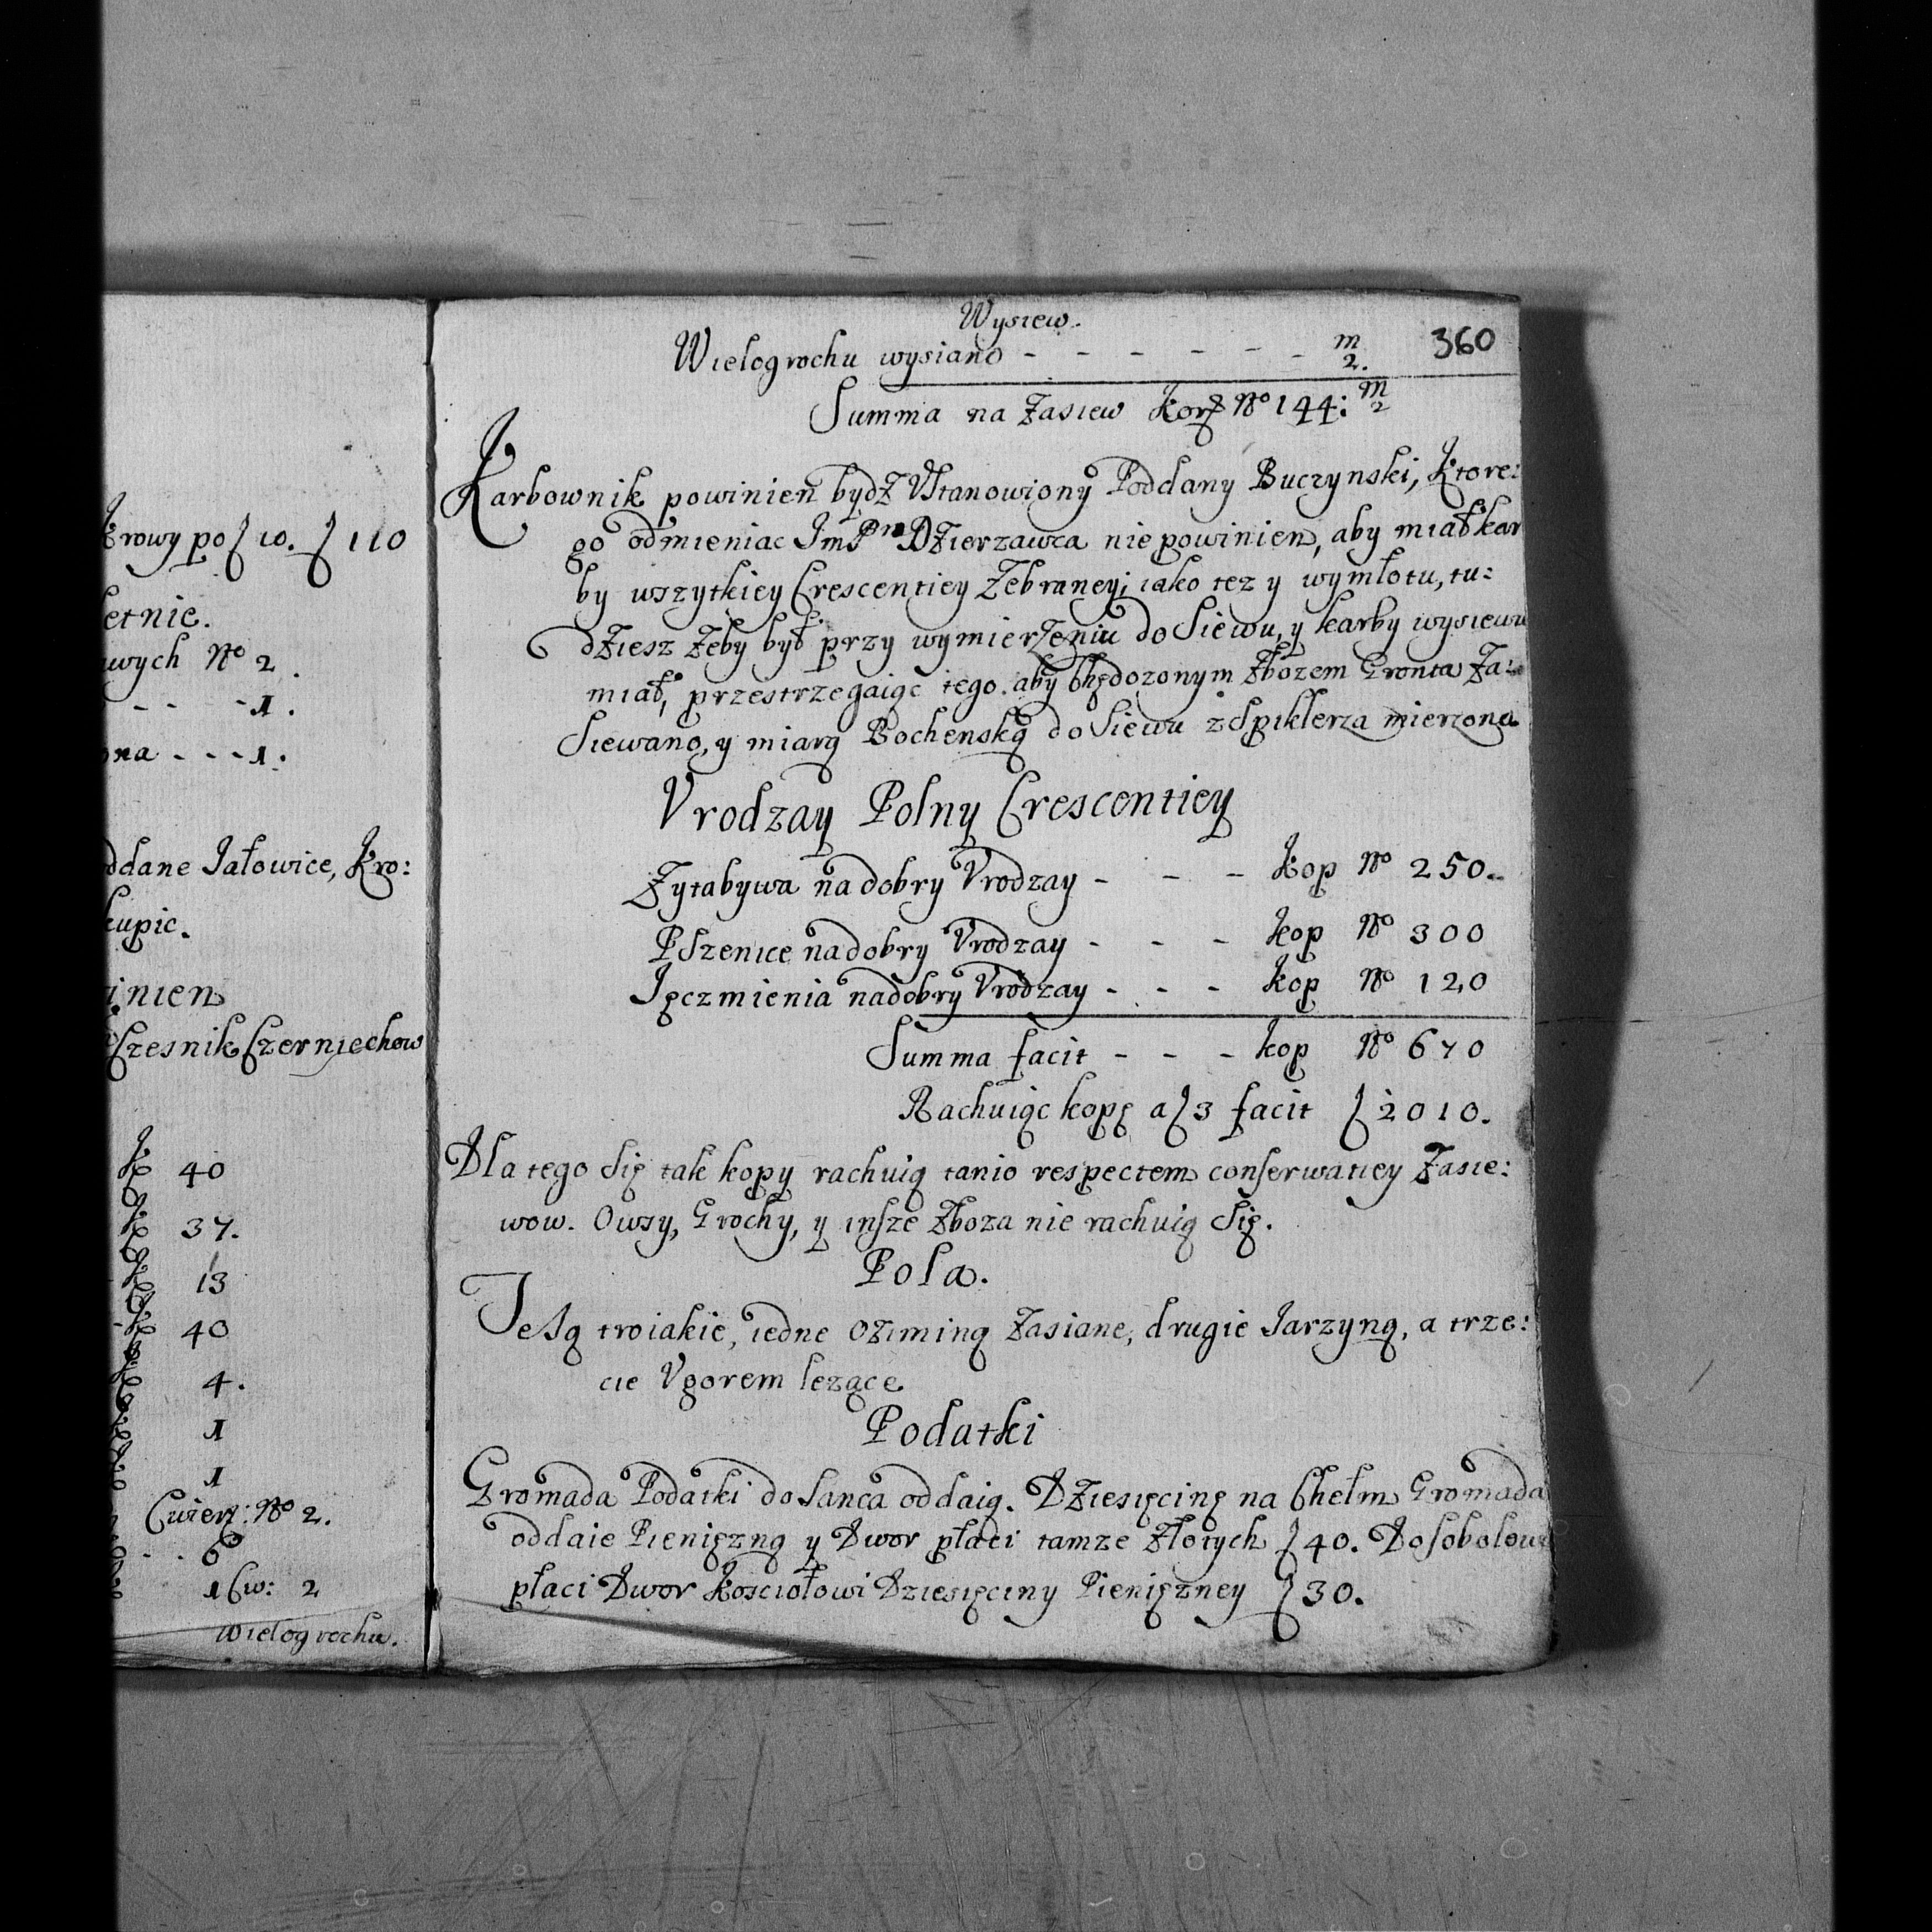 krowy po ʃ 10. ʃ 110
letnie.
wych No 2.
- - - 1.
ona - - - 1.
ddane Jałowice, Kro:
kupic.
inien
Czesnik Czerniechow
40
37.
13
40
4.
1
1
Cwierz: No 2.
6
1 Cw: 2
wielogrochu.
Wysiew.
360
Wielogrochu wysiano - - - - - - m 2.
Summa na Zasiew Korz No 144: m 2
Karbownik powinien bydz Ustanowiony Poddany Buczynski, Ktore:
go odmieniac ImPn Dzierzawca nie powinien, aby miał kar
by wszytkiey Crescentiey Zebraney, iako tez y wymłotu, tu:
dziesz zeby był przy wymierzeniu do Siewu, y karby wysiewu
miał, przestrzegaiąc tego. aby Chędozonym Zbozem Gronta Za:
Siewano, y miarą Bochenską do Siewu z Spiklerza mierzono
Vrodzay Polny Crescentiey
Zyta bywa na dobry Vrodzay - - - Kop No 250.
Pszenice na dobry Vrodzay - - - kop No 300
Jęczmienia na dobry Vrodzay - - - kop No 120
Summa facit - - - kop No 670
Rachuiąc kopę a ʃ 3 facit ʃ 2010.
Dla tego Się tak kopy rachuią tanio respectem conserwatiey Zasie:
wow. Owsy, Grochy, y insze Zboza nie rachuią Się.
Pola.
Te Są troiakie, iedne Oziminą Zasiane, drugie Jarzyną, a trze:
cie Vgorem lezące
Podatki
Gromada Podatki do Sanca oddaią. Dziesięcinę na Chełm Gromada
oddaie Pieniężną y Dwor płaci tamze Złotych ʃ 40. Do Sobolow
płaci Dwor Kosciołowi Dziesięciny Pieniężney ʃ 30.